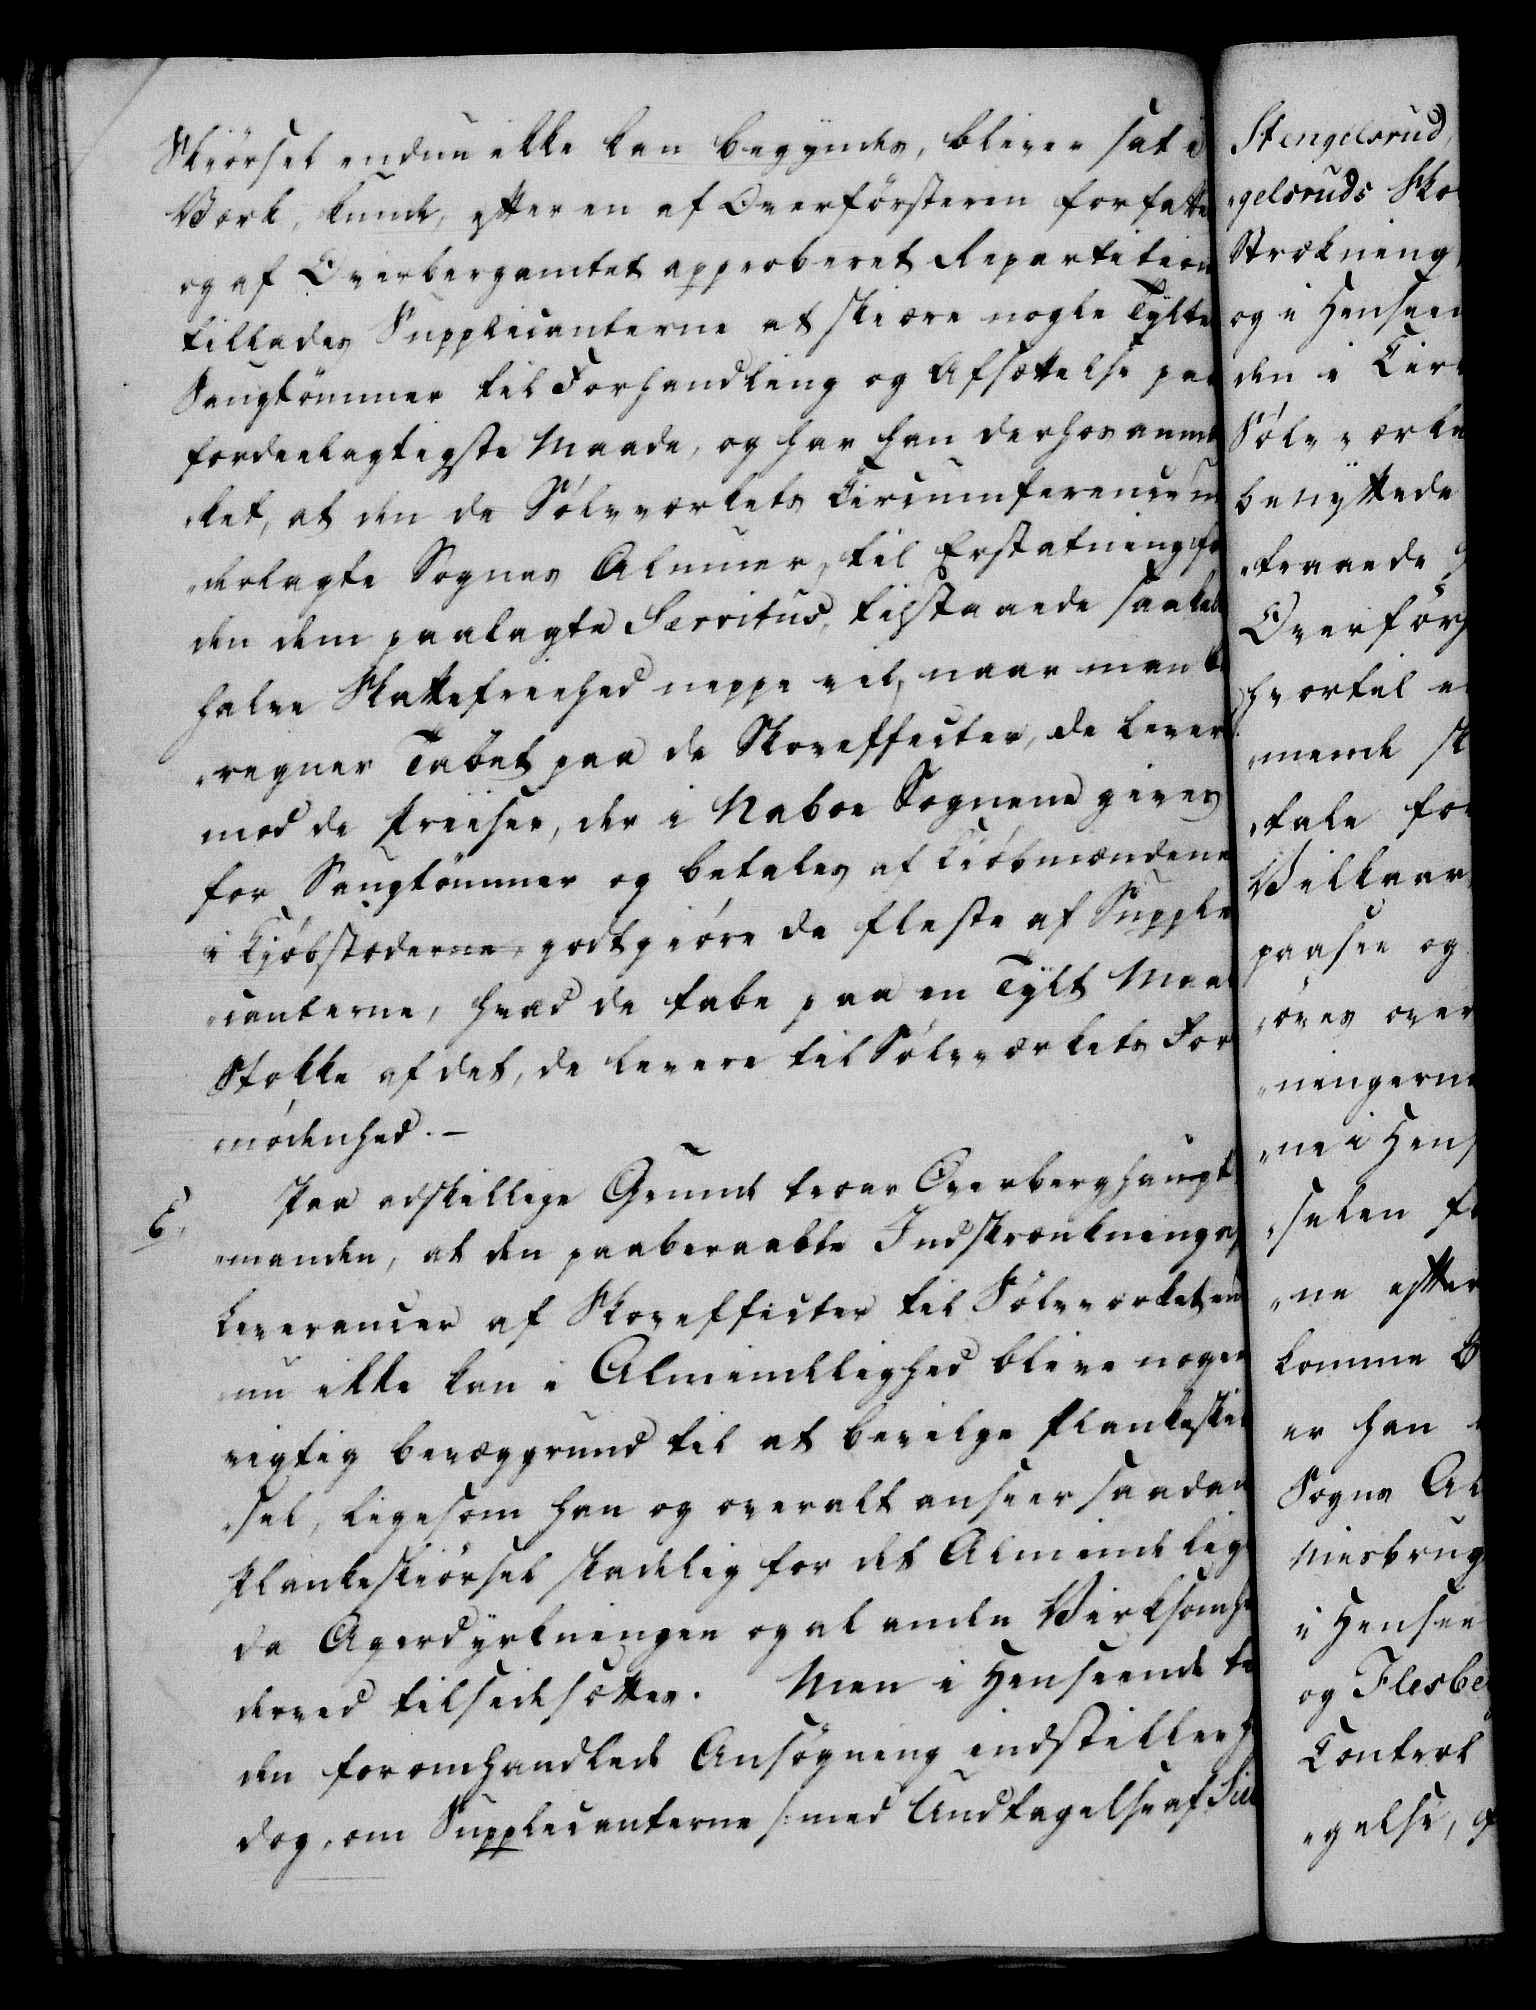 Skiörsel endnu ikke kan begyndes, bliver sat i
Værk, kunde, efter en af Overförsteren forfattet
og af Overbergamtet approberet Repartition
tillades Supplicanterne at skiære nogle Tylter
Saugtömmer til Forhandling og Afsættelse paa
fordeelagtigste Maade, og har han derhos anmær
„ket, at den de Sölvværkets Circumference un
„derlagte Sognes Almuer, til Erstatning for
den dem paalagte Servitus, tilstaaede saakaldte
halve Skattefriehed neppe vil, naar man be
„regner Tabet paa de Skoveffecter, de levere
mod de Priiser, der i Naboe Sognene gives
for Saugtömmer og betales af Kiöbmændene
i Kjöbstæderne, godtgiöre de fleste af Suppli
„canterne, hvad de tabe paa en Tylt Maal
Stokke af det, de levere til Sölvværkets For
nödenhed. –
E. Paa adskillige Grunde troer Overberghaupt
„manden, at den paaberaabte Indskrænkning af
Leverancer af Skoveffecter til Sölvværket end
nu ikke kan i Almindelighed blive nogen
vigtig bevæggrund til at bevilge Plankeskiör
„sel, ligesom han og overalt anseer saadan
Plankeskiörsel skadelig for det Almindelige
da Agerdyrkningen og al anden Virksomhed
derved tilsidesættes. Men i Henseende til
den foromhandlede Ansögning indstiller han
dog, om Supplicanterne /: med Undtagelse af
Stengelsrud,
„gelsruds Sko
Strækning
og i Henseen
den i Cir
Sölvværke
benyttede
„traaede
Overförs
hvortil
„mende sk
„tale for
Villkaar
paasee og
„öves over
„ningerne
„ne i Hens
„selen
„ne efter
komme
er han
Sogns Al
Misbrug
i Hensee
og Flesbe
Control
„gelse,